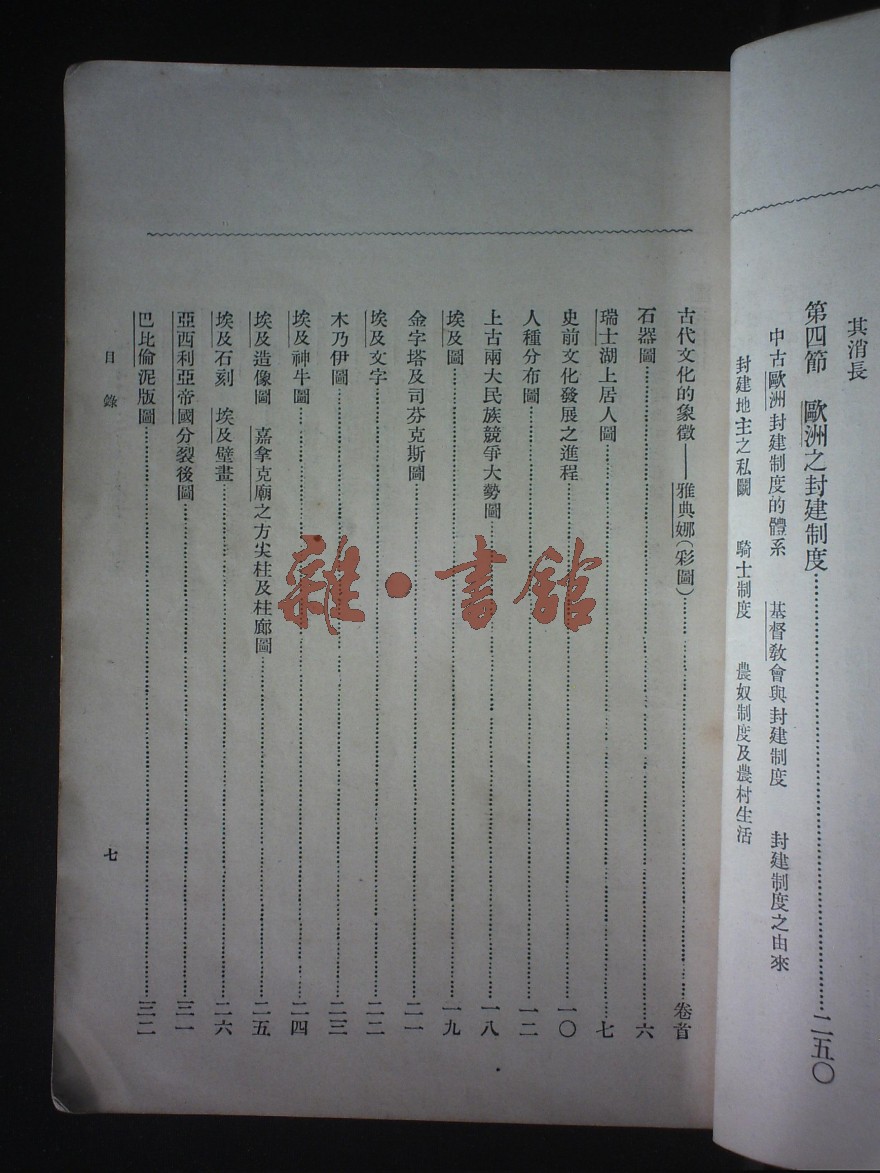 其消長
第四節　歐洲之封建制度……………二五〇
中古歐洲封建制度的體系　基督教會與封建制度　封建制度之由來
封建地主之私鬭　騎士制度　農奴制度及農村生活
古代文化的象徵——雅典娜(彩圖)……………卷首
石器圖……………六
瑞士湖上居人圖……………七
史前文化發展之進程……………一〇
人種分布圖……………一二
上古兩大民族競爭大勢圖……………一八
埃及圖……………一九
金字塔及司芬克斯圖……………二一
埃及文字……………二二
木乃伊圖……………二三
埃及神牛圖……………二四
埃及造像圖　嘉拿克廟之方尖柱及柱廊圖……………二五
埃及石刻　埃及壁畫……………二六
亞西利亞帝國分裂後圖……………三一
巴比倫泥版圖……………三二
目錄
七
雜·書館